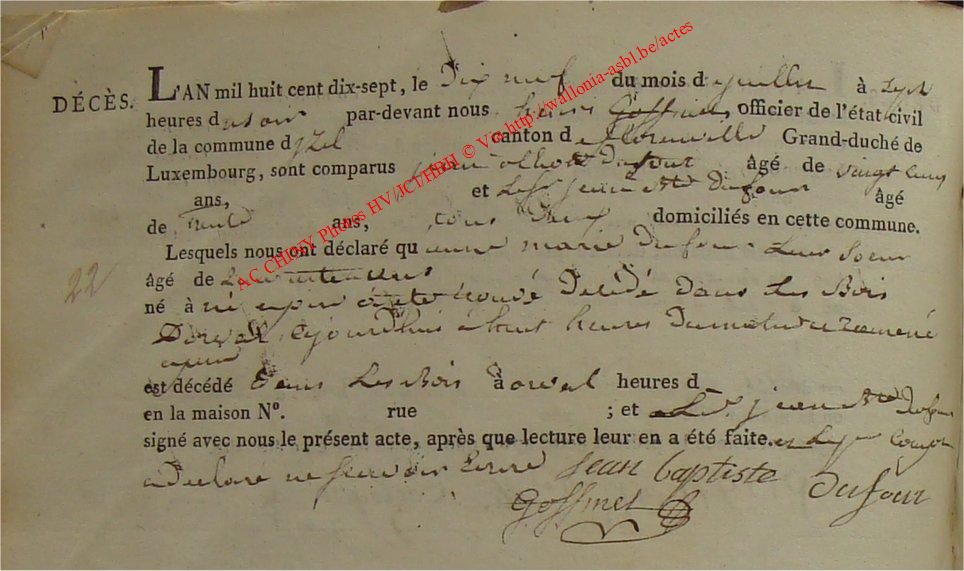 DÉCÈS. L'AN mil huit cent dix-sept, le Dix neuf du mois de juillet à Sept
heures du soir par-devant nous henri Goffinet, officier de l'état civil
de la commune d'izel canton de florenville Grand-duché de
Luxembourg, sont comparus jean Dufour âgé de vingt cinq
ans, et jean Bte Dufour âgé
de trente ans, tous Deux domiciliés en cette commune.
Lesquels nous ont déclaré qu'anne marie Dufour Leur Soeur
âgé de
22
né à izel a été trouvé Décédé Dans Les Bois
Dorval aujourdhuis à huit heures Du matin ramené
est décédé Dans Les Bois à orval heures d
en la maison No. rue ; et Le Sr jean Bte Dufour
signé avec nous le présent acte, après que lecture leur en a été faite. et
a Déclaré ne Scavoir Ecrire jean baptiste Dufour
Goffinet
AC CHINY Photos HV/JCT/HBH © Via http://wallonia-asbl.be/actes